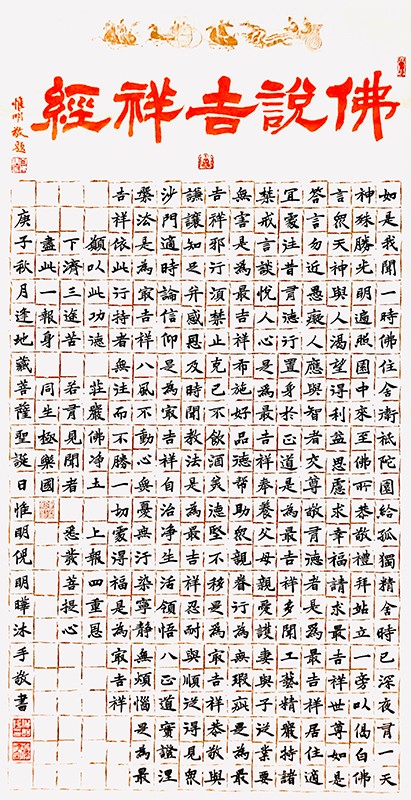 佛說吉祥經
惟明敬題
如是我聞一時佛住舍衛祇陀園給孤獨精舍時已深夜有一天
神殊勝光明遍照園中來至佛所恭敬禮拜站立一旁以偈白佛
言眾天神與人渴望得利益思慮求幸福請求最吉祥世尊如是
答言勿近愚癡人應與智者交尊敬有德者是為最吉祥居住適
宜處往昔有德行置身於正道是為最吉祥多聞工藝精嚴持諸
禁戒言談悅人心是為最吉祥奉養父母親愛護妻與子從業要
無害是為最吉祥布施好品德幫助眾親眷行為無瑕疵是為最
吉祥邪行須禁止克己不飲酒美德堅不移是為最吉祥恭敬與
謙讓知足並感恩及時聞教法是為最吉祥忍耐與順從得見眾
沙門適時論信仰是為最吉祥自治淨生活領悟八正道實證涅
槃法是為最吉祥八風不動心無憂無污染寧靜無煩惱是為最
吉祥依此行持者無往而不勝一切處得福是為最吉祥
願以此功德 莊嚴佛淨土 上報四重恩
下濟三途苦 若有見聞者 悉發菩提心
盡此一報身 同生極樂國
庚子秋月逢地藏菩薩聖誕日惟明倪明曄沐手敬書